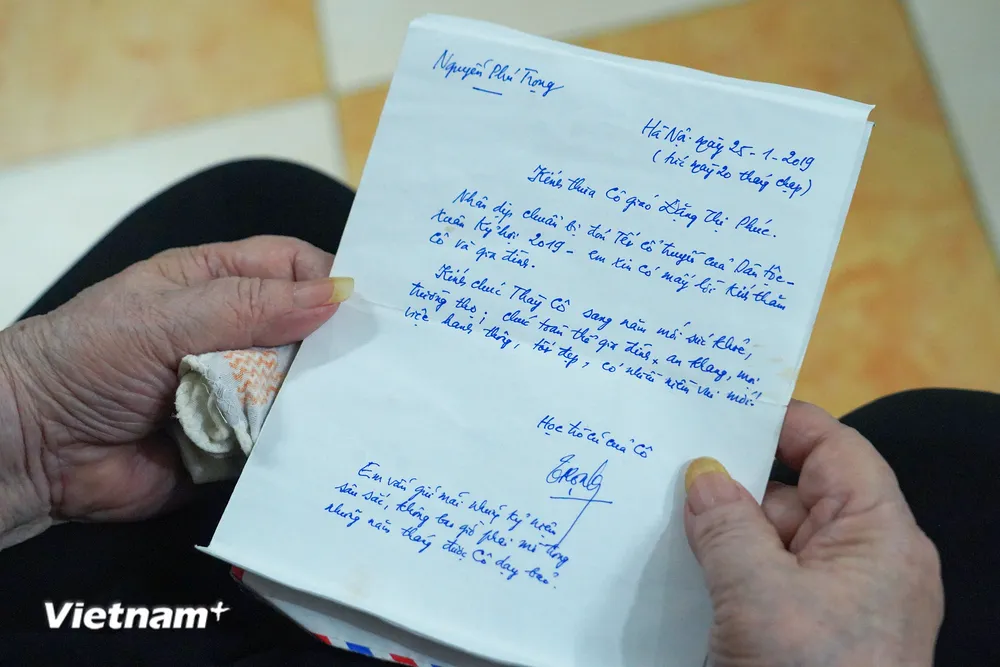 Nguyễn Phú Trọng
Hà Nội ngày 25-1-2019
(tức ngày 20 tháng chạp)
Kính thưa Cô giáo Đặng Thị Phúc.
Nhân dịp chuẩn bị đón Tết cổ truyền của Dân tộc -
Xuân Kỷ hợi 2019 - em xin có mấy lời kính thăm
cô và gia đình.
Kính chúc Thầy Cô sang năm mới sức khoẻ,
trường thọ; chúc toàn thể gia đình an khang, mọi
việc hanh thông, tốt đẹp, có nhiều niềm vui mới!
Học trò cũ của Cô
Trọng
Em vẫn giữ mãi những kỷ niệm
sâu sắc, không bao giờ phai mờ trong
những năm tháng được Cô dạy bảo.
Vietnam+